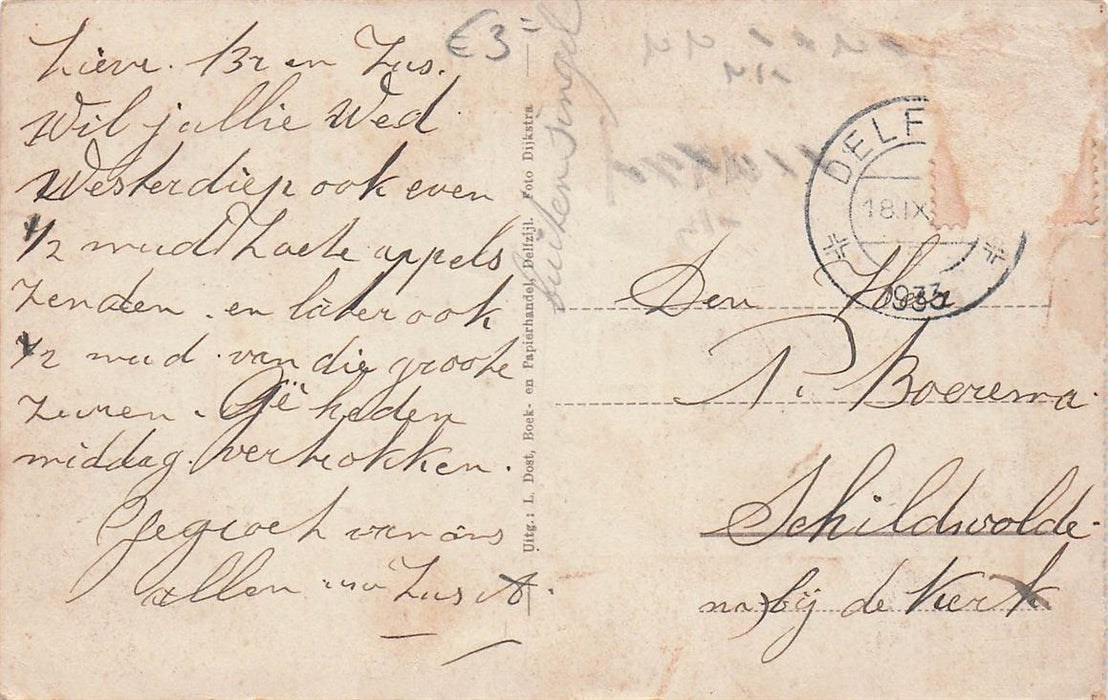 Lieve Br en Zus.
Wil jullie Wed
Westerdiep ook even
1/2 mud Zoete appels
zenden . en later ook
1/2 mud van die groote
zuren . Gé heden
middag vertrokken .
Gegroet van ons
allen uw Zus A.
€ 3=
buitensingel
Uitg.: L. Dost, Boek- en Papierhandel, Delfzijl. Foto Dijkstra
DELF
18.IX
1933
Den Heer
P. Boerema
Schildwolde
bij de Kerk